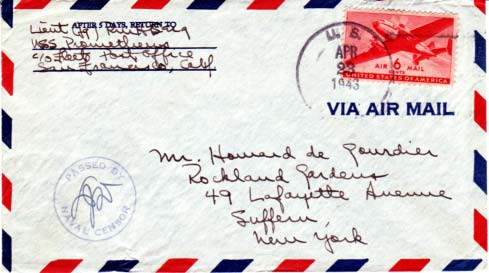 AFTER 5 DAYS, RETURN TO
Lieut
USS Prometheus
c/o Fleet Post Office
San Francisco, Calif
U. S.
APR
23
1943
AIR 6 MAIL
CENTS
UNITED STATES OF AMERICA
VIA AIR MAIL
PASSED BY
NAVAL CENSOR
Mr. Howard de Gourdier
Rockland Gardens
49 Lafayette Avenue
Suffern
New York